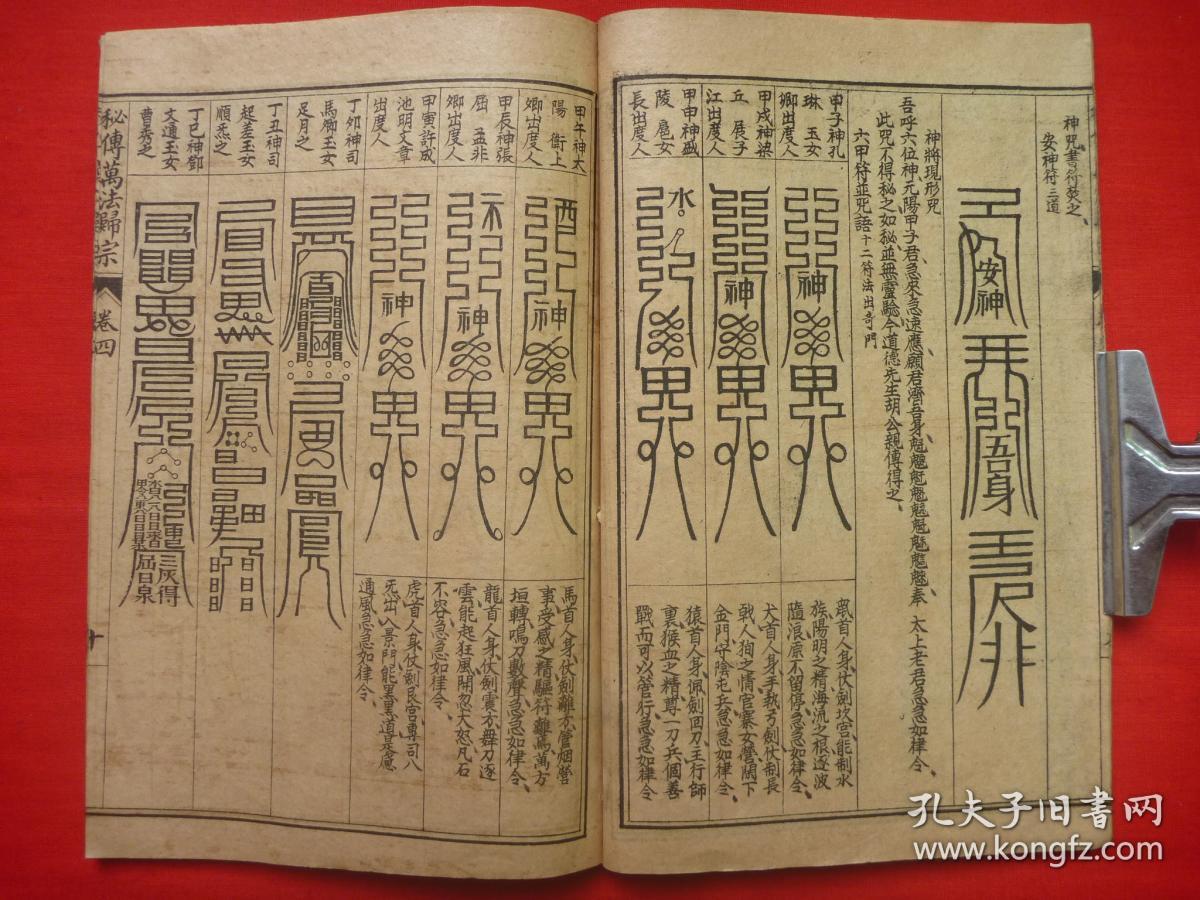 神咒書符焚之
安神符三道
安神
吾身
神將現形咒
吾呼六位神元陽甲子君急來急速應願君濟吾身魁䰢魓魒奉
太上老君急急如律令
此咒不得秘之如秘並無靈驗今道德先生胡公親傳得之
六甲符並咒語
十二符法出奇門
甲子神孔
琳玉女
卿出度人
神
鼠首人身仗劍坎宫能制水
族陽明之精海流之根逐波
隨浪底不留停急急如律令
甲戌神梁
丘展子
江出度人
神
犬首人身手執弓劍仗制長
戟人狥之情官寨女營閑下
金門守陰屯兵急急如律令
甲申神盛
陵扈女
長出度人
水
猿首人身佩劍回刀主行師
裏猴血之精尊一刀兵個善
戰而可以管行急急如律令
甲午神太
陽衙上
卿出度人
酉
神
馬首人身仗劍離方管烟營
事受感之精驅符離焉萬方
垣轉鳴刀數聲急急如律令
甲辰神張
屈孟非
卿出度人
神
龍首人身仗劍震方舞刀逐
雲能起狂風開忽大怒凡石
不容急急如律令
甲寅許成
池明文章
出度人
神
虎首人身仗劍艮宫專司八
旡出入景門能黑黑道是應
通風急急如律令
丁夘神司
馬卿玉女
足月之
丁丑神司
起差玉女
順炁之
丁巳神鄧
文通玉女
曹秀之
三灰得
屈日泉
秘傳萬法歸宗
卷四
十
孔夫子旧书网
www.kongfz.com